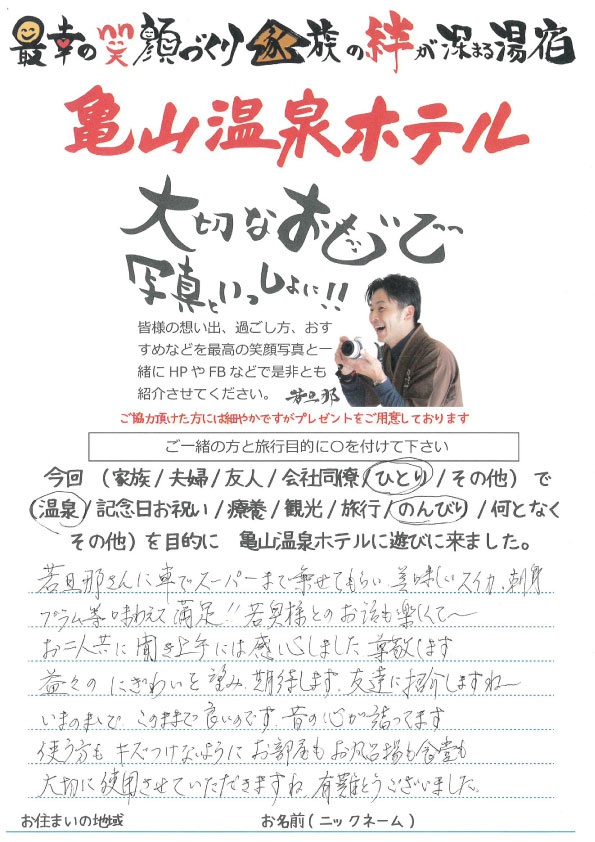 最幸の笑顔づくり家族の絆が深まる湯宿
亀山温泉ホテル
大切なおもいで
写真といっしょに!!
皆様の想い出、過ごし方、おす
すめなどを最高の笑顔写真と一
緒にHPやFBなどで是非とも
紹介させてください。 若旦那
ご協力頂けた方には細やかですがプレゼントをご用意しております
ご一緒の方と旅行目的に〇を付けて下さい
今回 (家族/夫婦/友人/会社同僚/ひとり/その他) で
(温泉/記念日お祝い/療養/観光/旅行/のんびり/何となく
その他) を目的に 亀山温泉ホテルに遊びに来ました。
若旦那さんに車でスーパーまで乗せてもらい 美味しいスイカ、刺身
プラム等味わえて満足!! 若奥様とのお話も楽しくて〜
お二人共に聞き上手には感心しました 尊敬します
益々のにぎわいを望み、期待します、友達に紹介しますね〜
いまのまんまで、このままで良いのです、昔の心が詰ってます
使う方も キズつけないように お部屋もお風呂場も食堂も
大切に使用させていただきますね、有難とうございました。
お住まいの地域 お名前(ニックネーム)